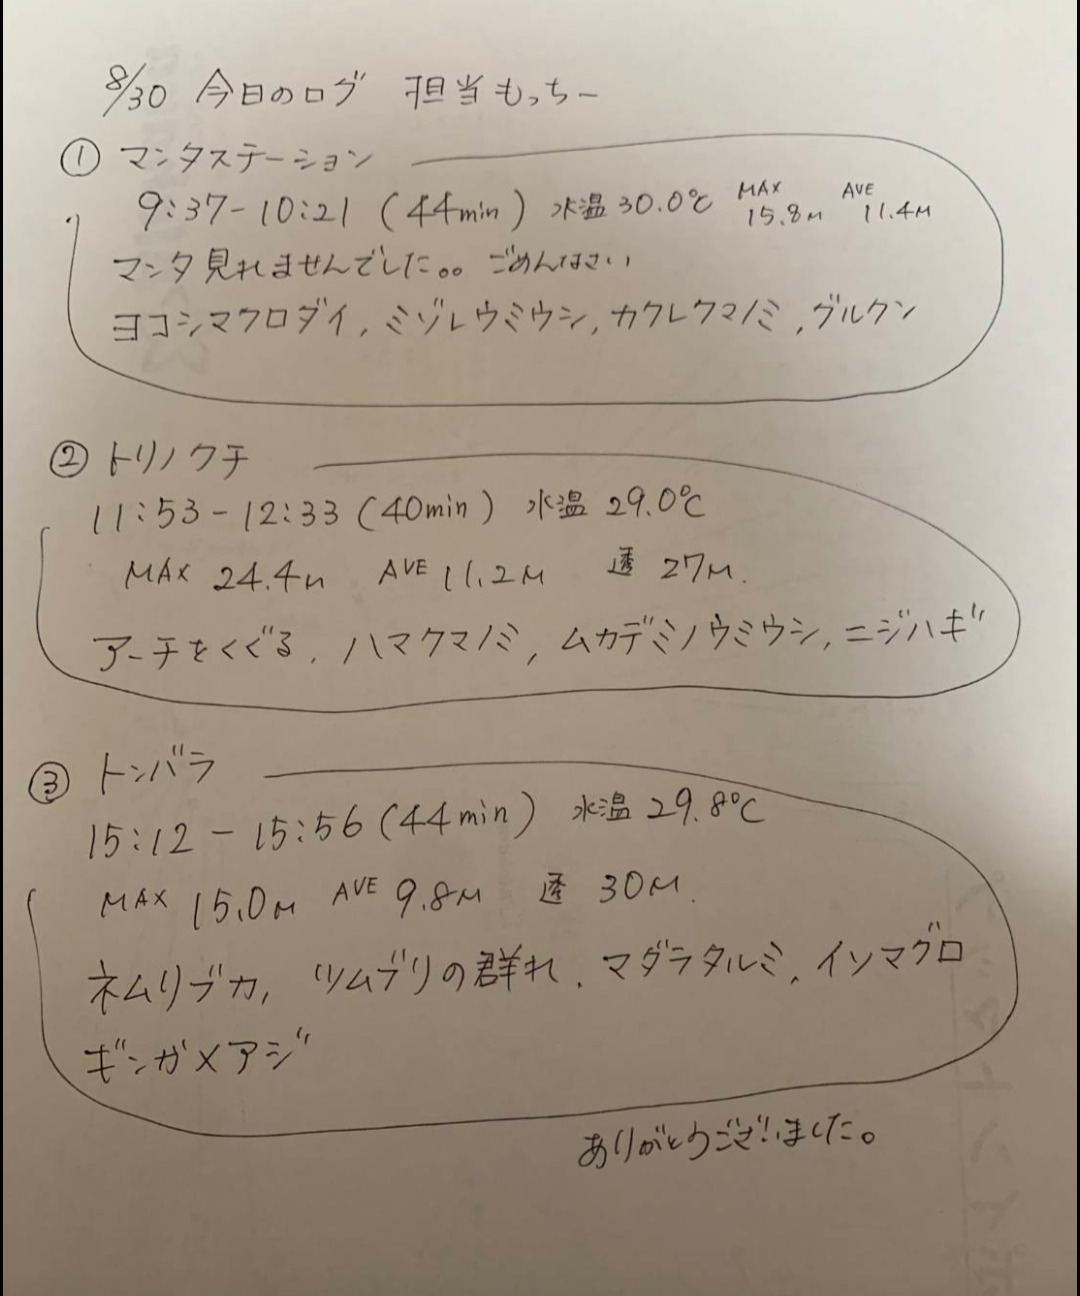 8/30 今日のログ 担当もっちー
① マンタステーション
9:37-10:21 (44min) 水温 30.0℃ MAX 15.8M AVE 11.4M
マンタ見れませんでした。。ごめんなさい
ヨコシマクロダイ, ミゾレウミウシ, カクレクマノミ, グルクン
② トリノクチ
11:53-12:33 (40min) 水温 29.0℃
MAX 24.4M AVE 11.2M 透 27M.
アーチをくぐる, ハマクマノミ, ムカデミノウミウシ, ニジハギ
③ トンバラ
15:12-15:56 (44min) 水温 29.8℃
MAX 15.0M AVE 9.8M 透 30M.
ネムリブカ, ツムブリの群れ, マダラタルミ, イソマグロ
ギンガメアジ
ありがとうございました。